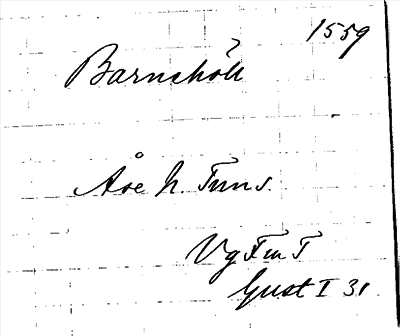 1559
Barnehåll
Åse h. Tuns.
Vg Fm T
Gust I 31